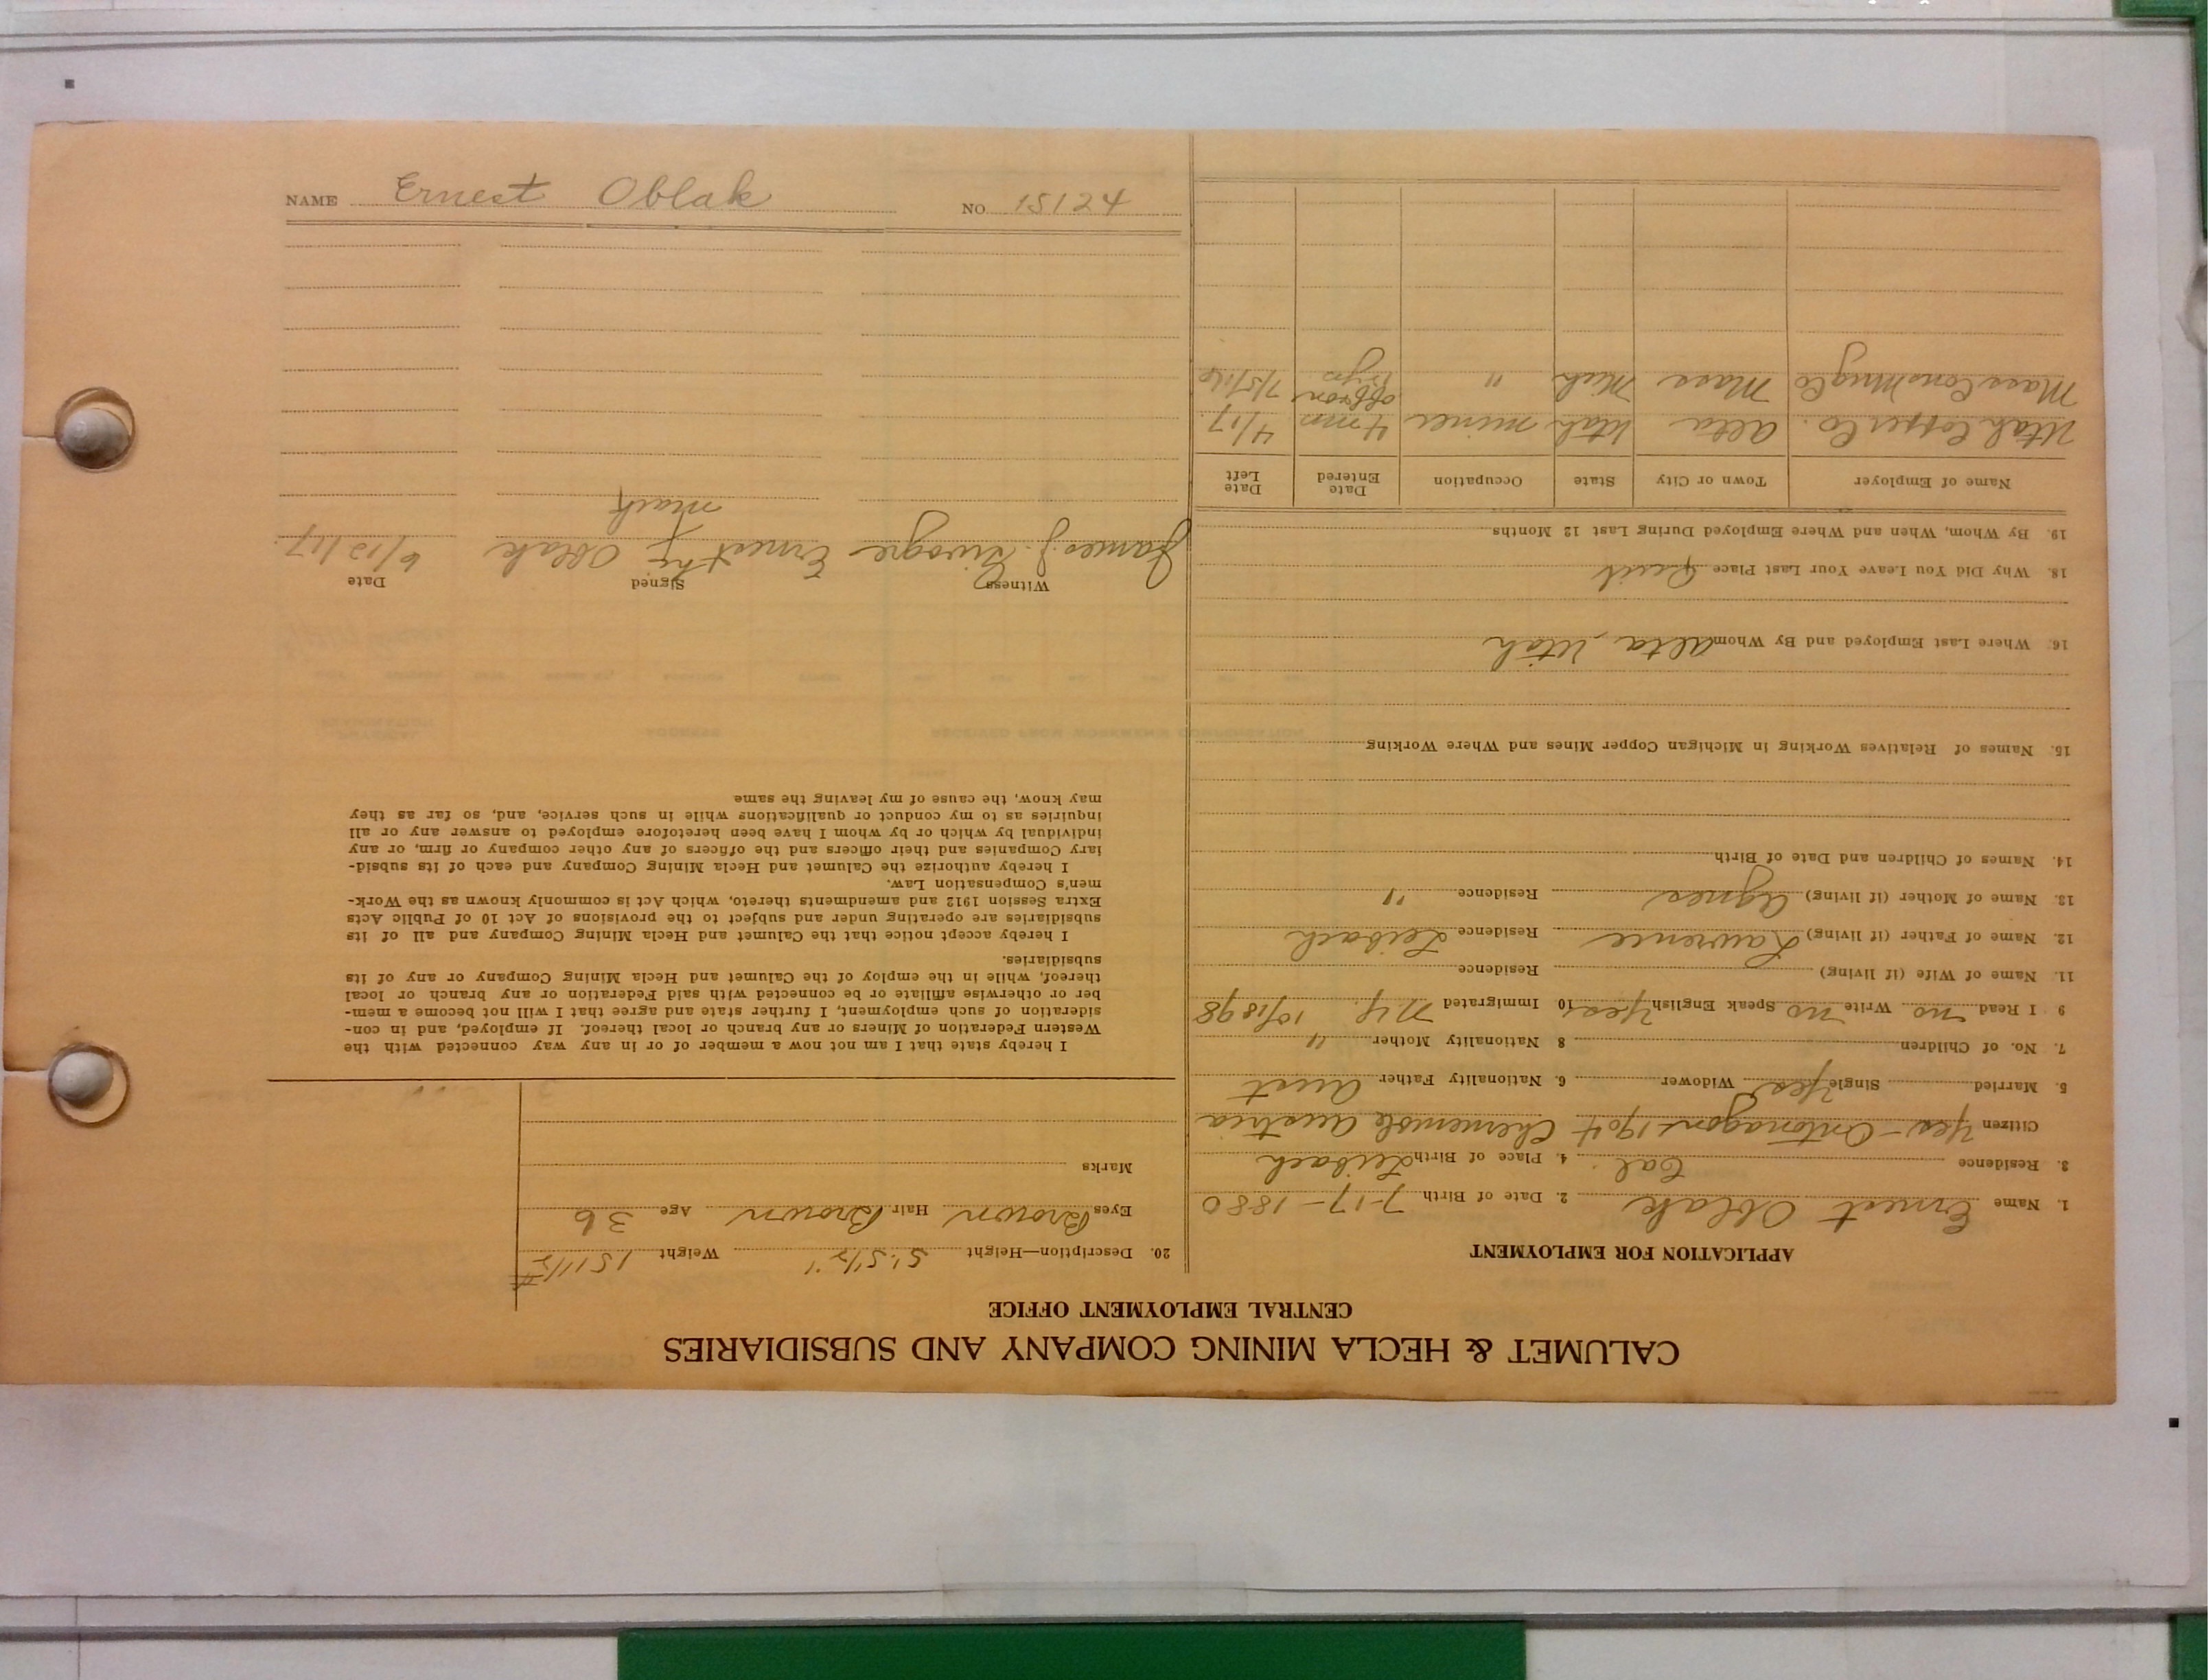 CALUMET & HECLA MINING COMPANY AND SUBSIDIARIES
CENTRAL EMPLOYMENT OFFICE
APPLICATION FOR EMPLOYMENT
1. Name Ernest Oblak 2. Date of Birth 7-17-1880
3. Residence Cal. 4. Place of Birth Leibach
Citizen Yes - Ontonagon 1904 Austria
5. Married Single Yes Widower 6. Nationality Father Aust
7. No. of Children 8 Nationality Mother "
9 I Read no Write no Speak English Yes 10 Immigrated N.Y. 10/1898
11. Name of Wife (if living) Residence
12. Name of Father (if living) Lawrence Residence Leibach
13. Name of Mother (if living) Agnes Residence "
14. Names of Children and Date of Birth
15. Names of Relatives Working in Michigan Copper Mines and Where Working
16. Where Last Employed and By Whom Alta, Utah
18. Why Did You Leave Your Last Place Quit
19. By Whom, When and Where Employed During Last 12 Months
Name of Employer Town or City State Occupation Date Entered Date Left
Utah Copper Co. Alta Utah miner 4 mos 4/17
Mass Cons Mng Co Mass Mich " off & on 7/5/16
20. Description—Height 5' 5 1/2" Weight 151 1/2 #
Eyes Brown Hair Brown Age 36
Marks
I hereby state that I am not now a member of or in any way connected with the
Western Federation of Miners or any branch or local thereof. If employed, and in con-
sideration of such employment, I further state and agree that I will not become a mem-
ber or otherwise affiliate or be connected with said Federation or any branch or local
thereof, while in the employ of the Calumet and Hecla Mining Company or any of its
subsidiaries.
I hereby accept notice that the Calumet and Hecla Mining Company and all of its
subsidiaries are operating under and subject to the provisions of Act 10 of Public Acts
Extra Session 1912 and amendments thereto, which Act is commonly known as the Work-
men's Compensation Law.
I hereby authorize the Calumet and Hecla Mining Company and each of its subsid-
iary Companies and their officers and the officers of any other company or firm, or any
individual by which or by whom I have been heretofore employed to answer any or all
inquiries as to my conduct or qualifications while in such service, and, so far as they
may know, the cause of my leaving the same
Witness Signed Date
James J. Ernest his Oblak 6/12/17
mark
NAME Ernest Oblak NO 15124